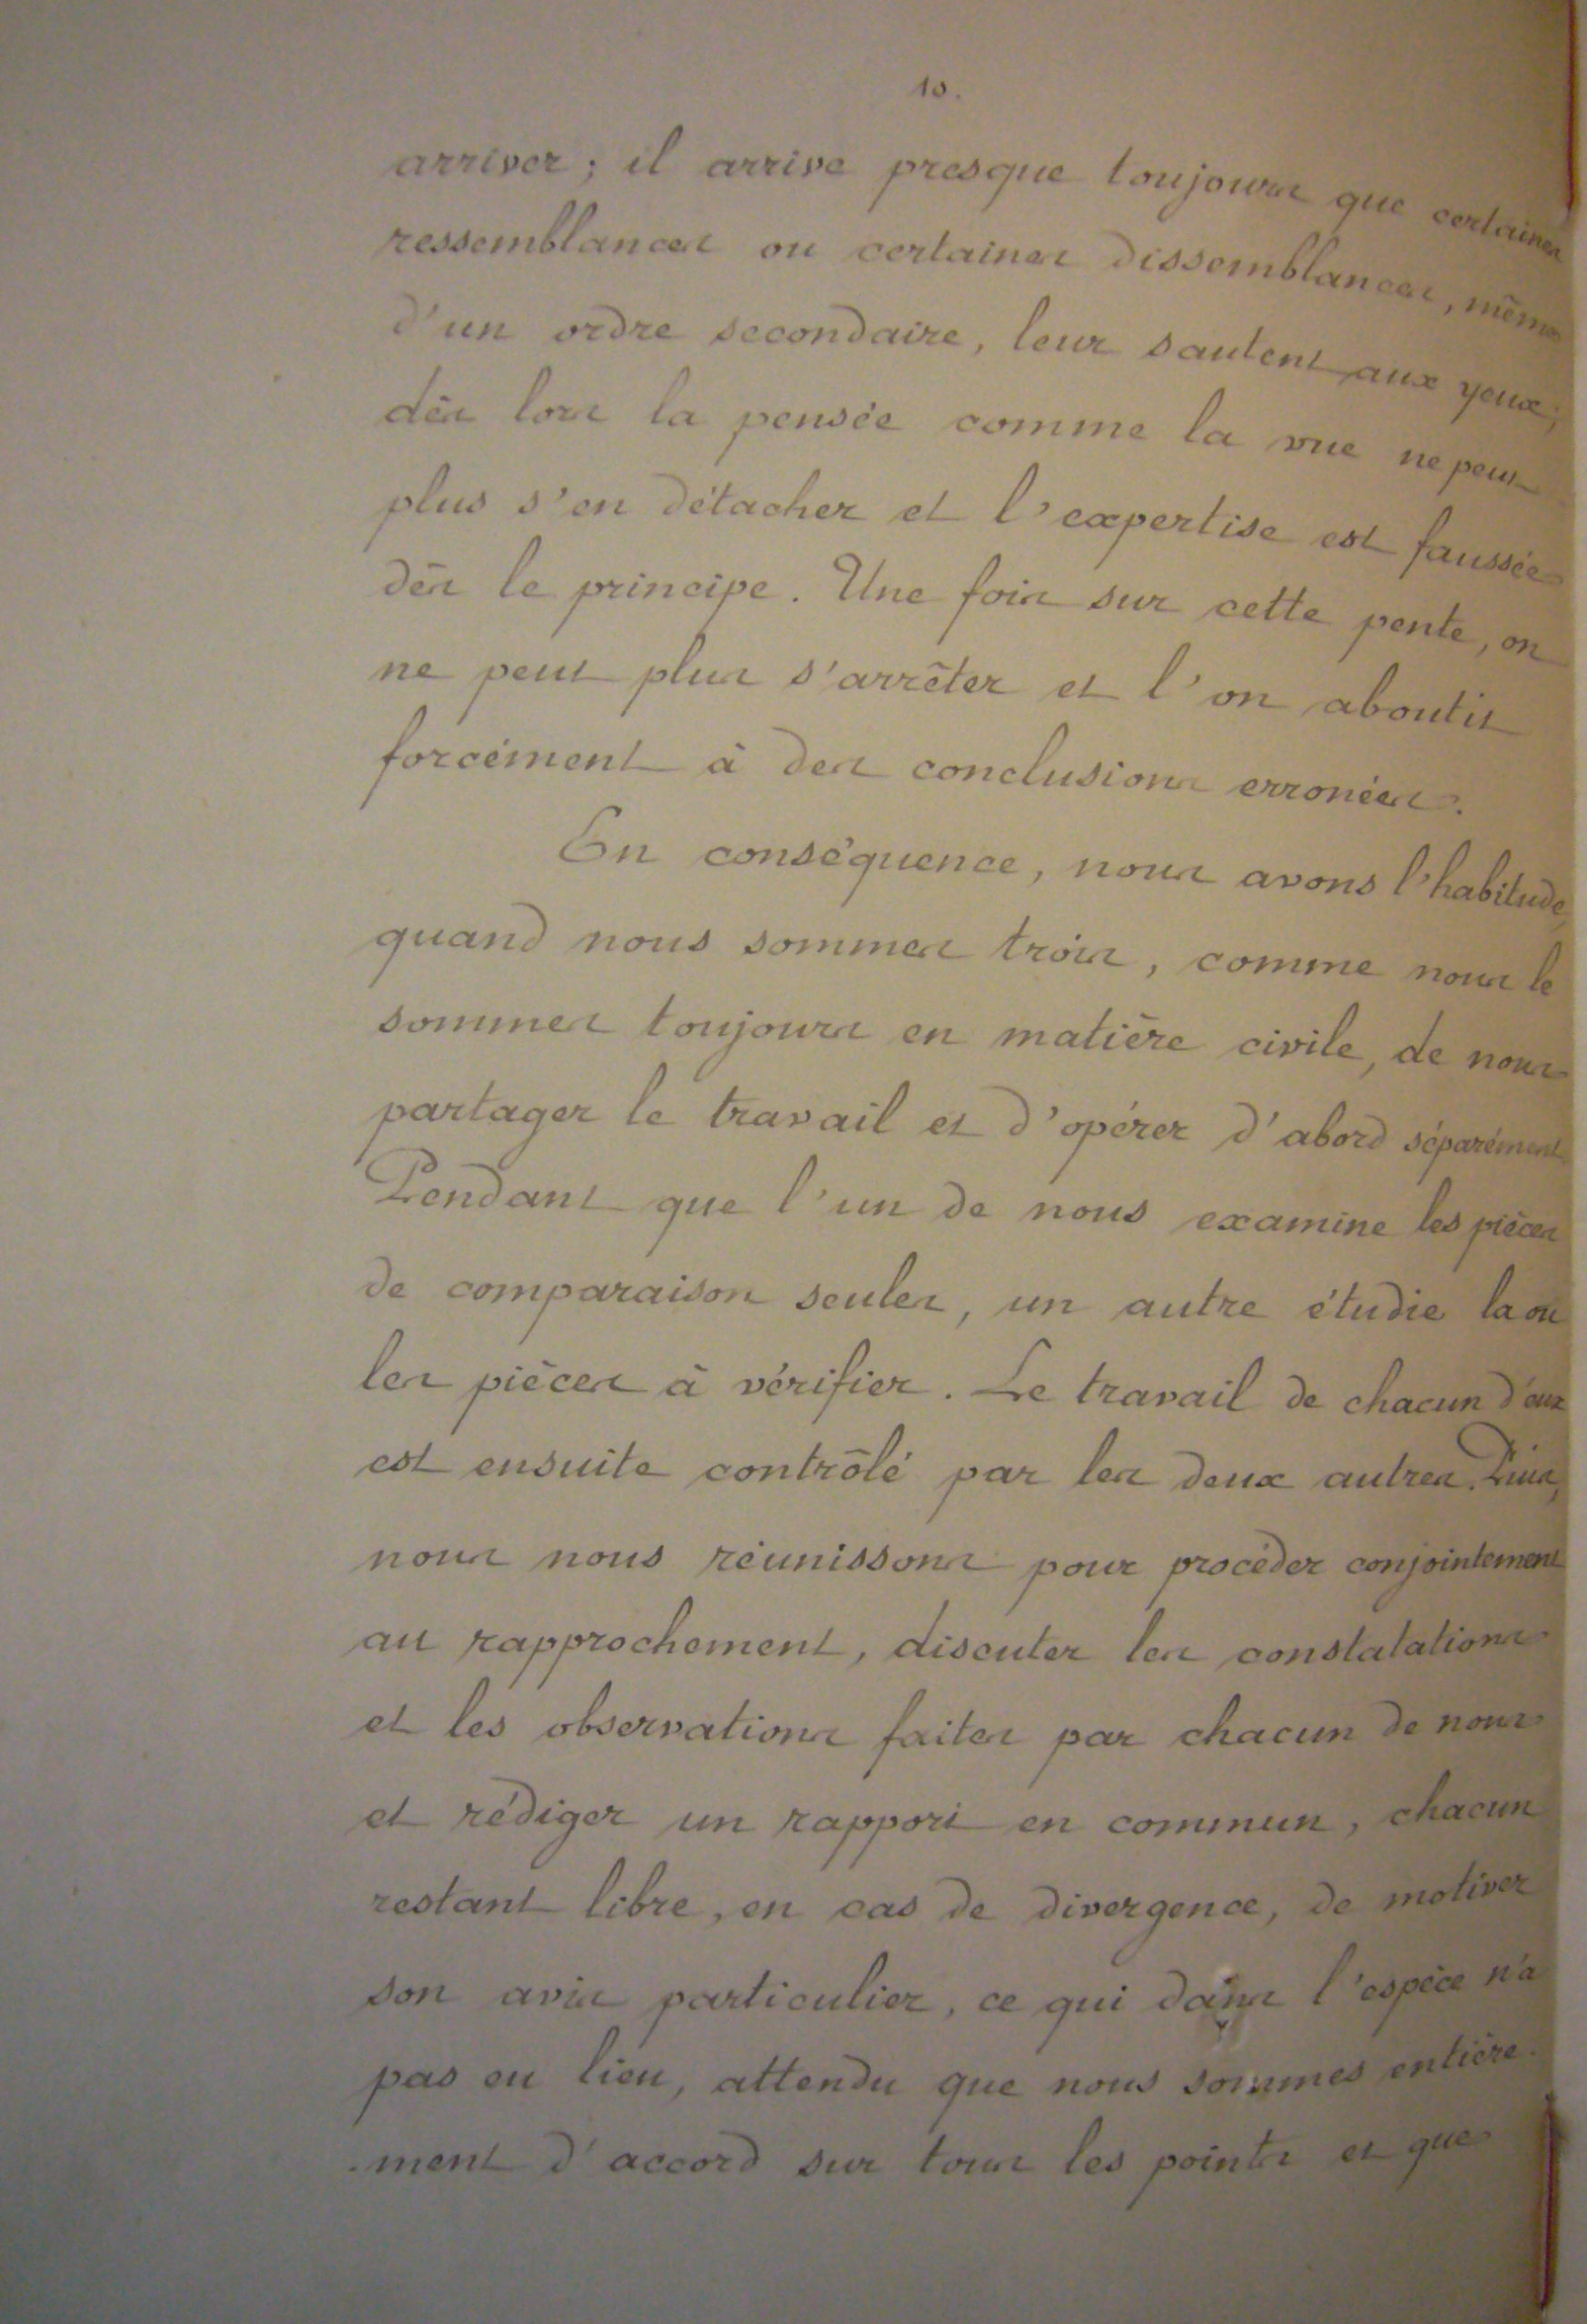 10.
arriver ; il arrive presque toujours que certaines
ressemblances ou certaines dissemblances, même
d'un ordre secondaire, leur sautent aux yeux ;
dès lors la pensée comme la vue ne peut
plus s'en détacher et l'expertise est faussée
dès le principe. Une fois sur cette pente, on
ne peut plus s'arrêter et l'on aboutit
forcément à des conclusions erronées.
En conséquence, nous avons l'habitude,
quand nous sommes trois, comme nous le
sommes toujours en matière civile, de nous
partager le travail et d'opérer d'abord séparément.
Pendant que l'un de nous examine les pièces
de comparaison seules, un autre étudie la ou
les pièces à vérifier. Le travail de chacun d'eux
est ensuite contrôlé par les deux autres. Puis,
nous nous réunissons pour procéder conjointement
au rapprochement, discuter les constatations
et les observations faites par chacun de nous
et rédiger un rapport en commun, chacun
restant libre, en cas de divergence, de motiver
son avis particulier, ce qui dans l'espèce n'a
pas eu lieu, attendu que nous sommes entière-
-ment d'accord sur tous les points et que